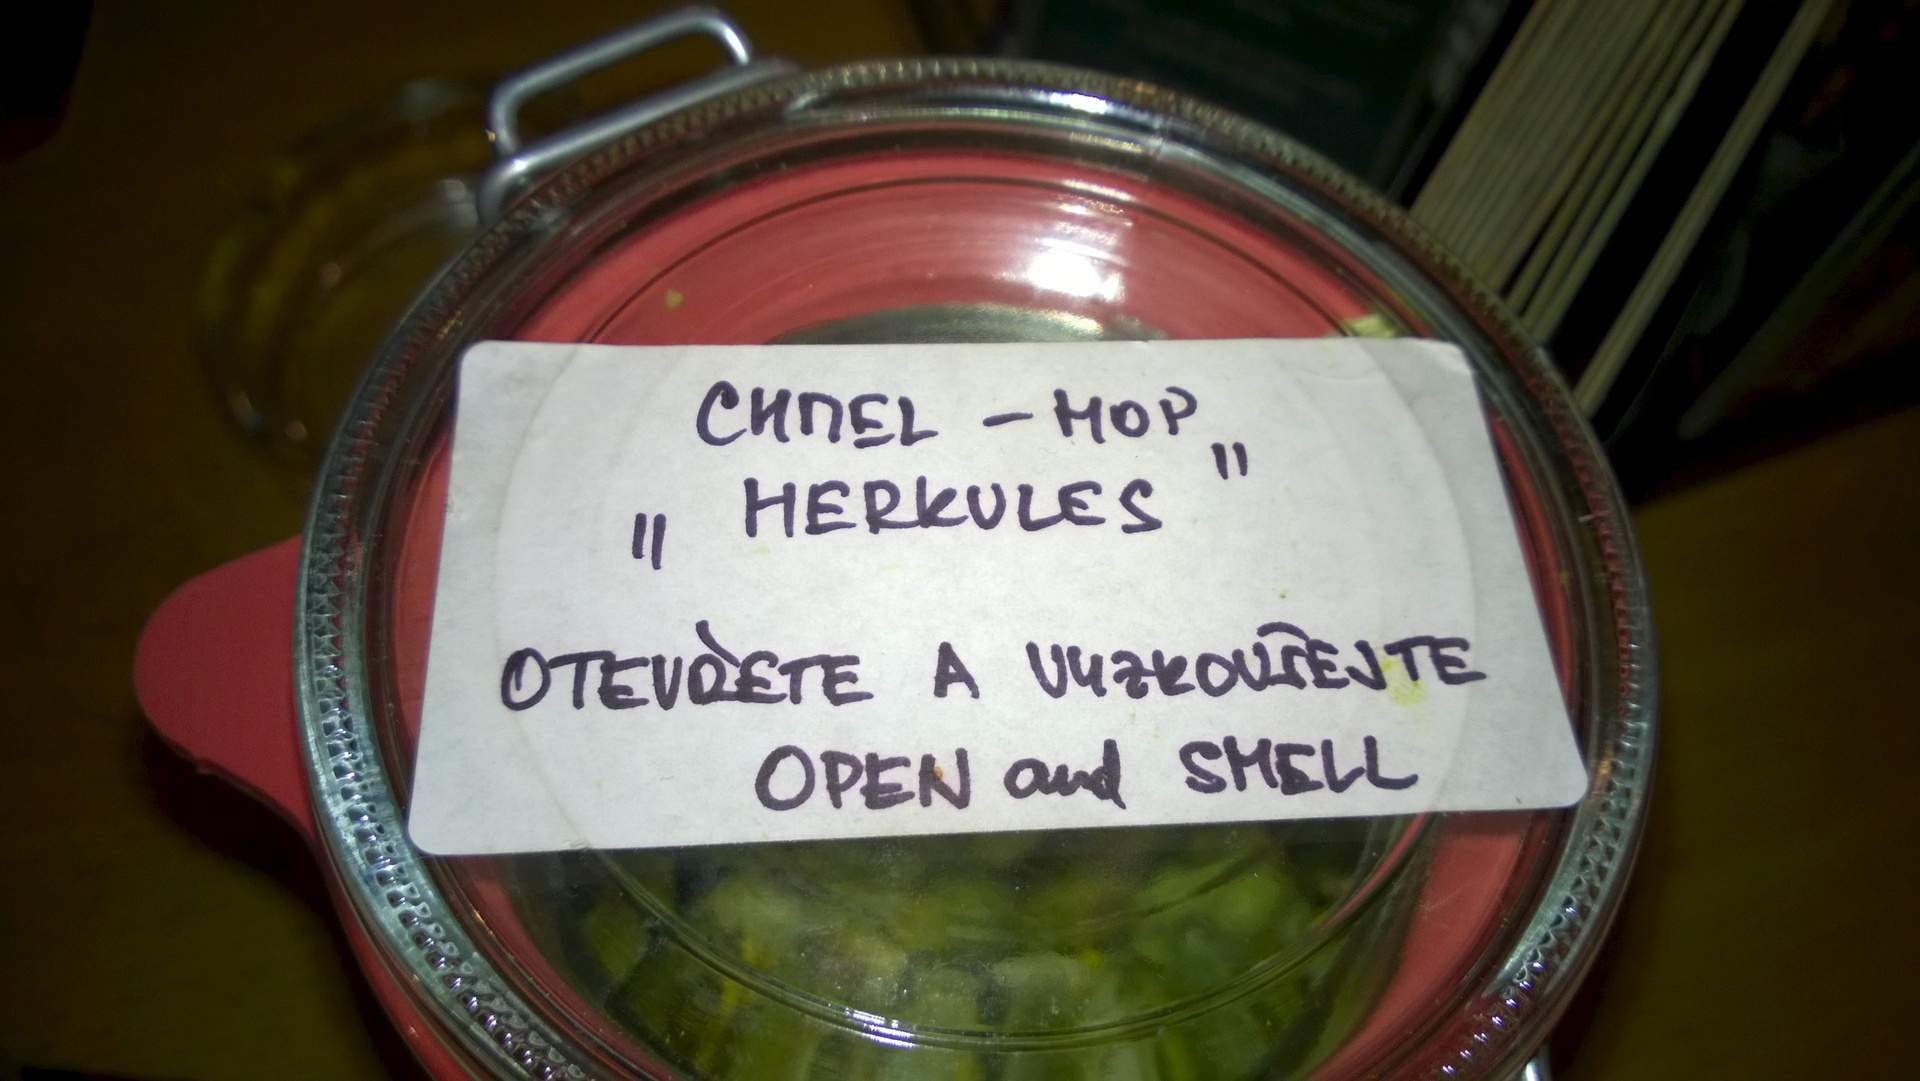 CHMEL - HOP
„HERKULES"
OTEVŘETE A VYZKOUŠEJTE
OPEN and SMELL